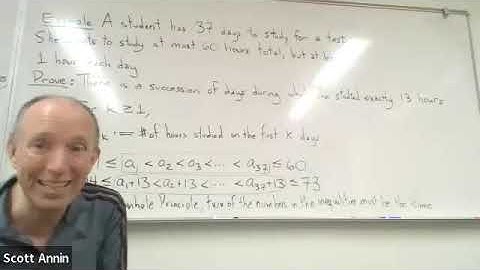 Example A student has 37 days to study for a test.
She wants to study at most 60 hours total, but at
1 hour each day.
Prove: There is a succession of days during studied exactly 13 hours
k ≥ 1,
k := # of hours studied on the first k days
1 ≤ a₁ < a₂ < a₃ < ⋯ < a₃₇ ≤ 60
a₁+13 < a₂+13 < ⋯ < a₃₇+13 ≤ 73
Principle, two of the numbers in the inequalities must be the same
Scott Annin